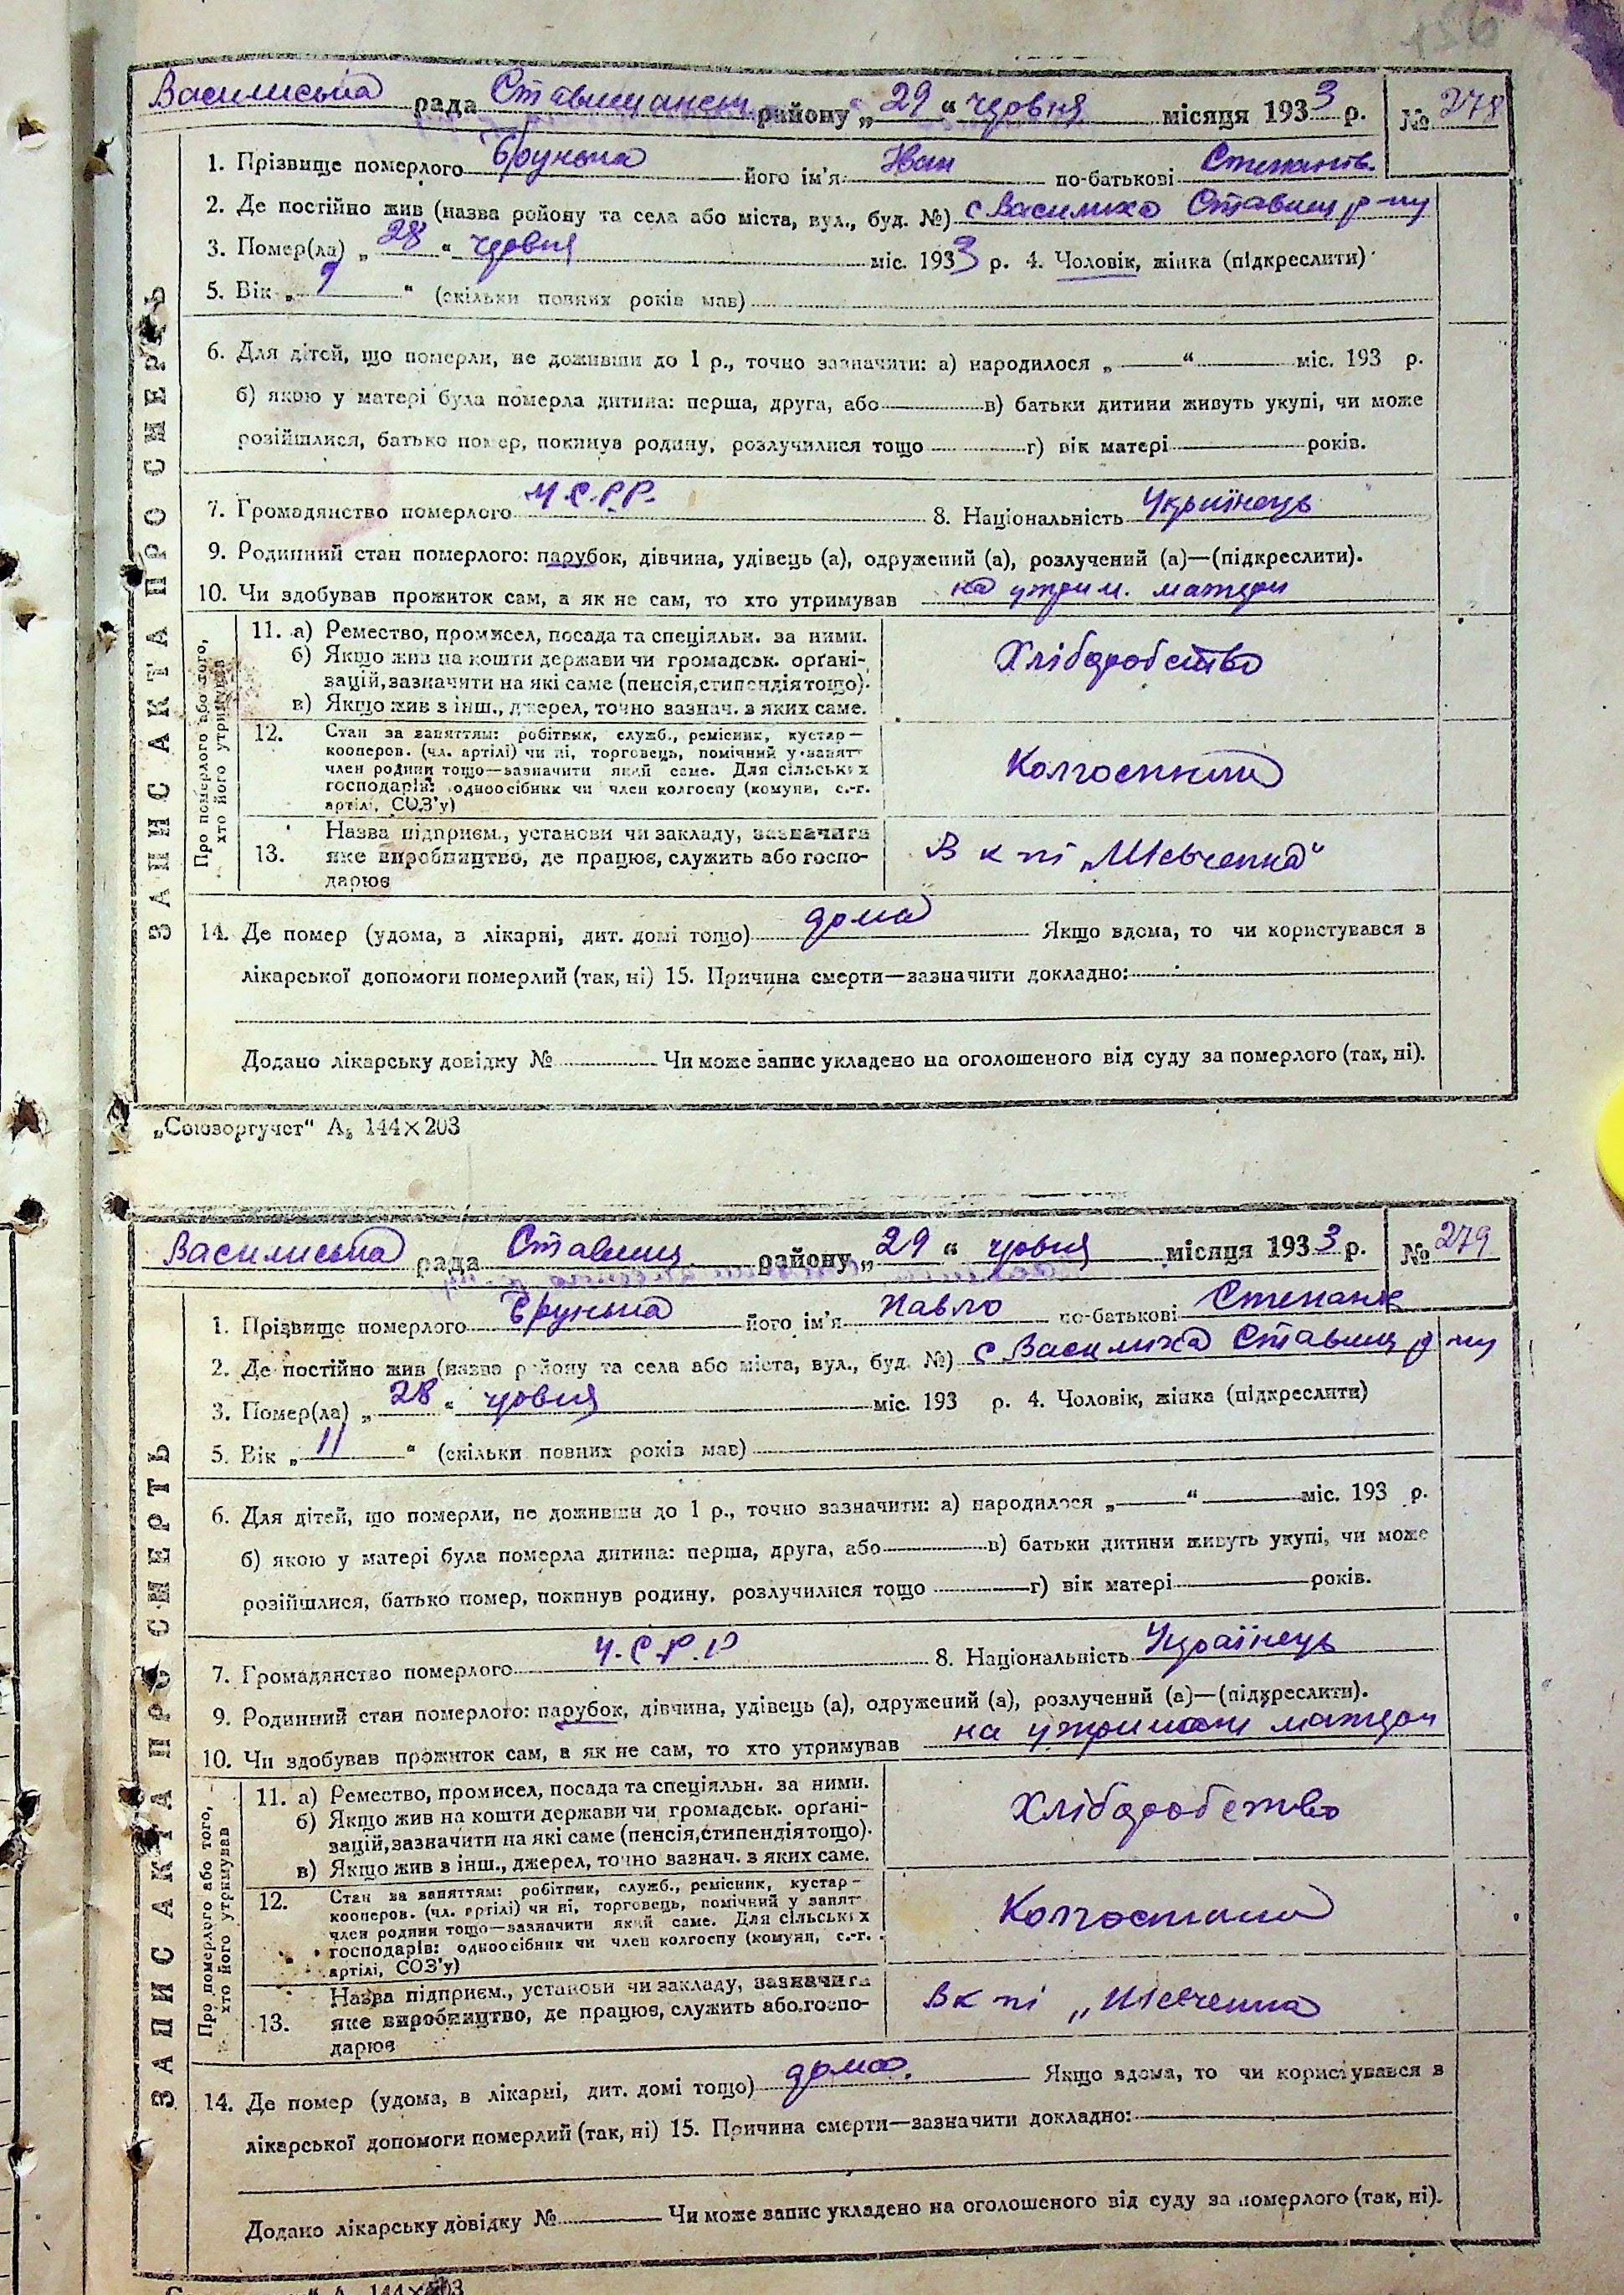 Василиська рада Ставищанськ району „29“ червня місяця 1933 р. № 278
1. Прізвище померлого Брунька його ім'я Иван по-батькові Степанів.
2. Де постійно жив (назва району та села або міста, вул., буд. №) с Василиха Ставищ р-ну
3. Помер(ла) „28“ червня міс. 1933 р. 4. Чоловік, жінка (підкреслити)
5. Вік „9“ (скільки повних років мав)
6. Для дітей, що померли, не доживши до 1 р., точно зазначити: а) народилося „ “ міс. 193 р.
б) якою у матері була померла дитина: перша, друга, або в) батьки дитини живуть укупі, чи може
розійшлися, батько помер, покинув родину, розлучилися тощо г) вік матері років.
7. Громадянство померлого У.С.Р.Р. 8. Національність Українець
9. Родинний стан померлого: парубок, дівчина, удівець (а), одружений (а), розлучений (а)—(підкреслити).
10. Чи здобував прожиток сам, а як не сам, то хто утримував на утрим. матери
ЗАПИС АКТА ПРО СМЕРТЬ
Про померлого або того,
хто його утримував
11. а) Ремество, промисел, посада та спеціяльн. за ними.
б) Якщо жив на кошти держави чи громадськ. орґані-
зацій, зазначити на які саме (пенсія, стипендія тощо).
в) Якщо жив з інш., джерел, точно зазнач. з яких саме.
Хліборобство
12. Стан за заняттям: робітник, служб., ремісник, кустар—
кооперов. (чл. артілі) чи ні, торговець, помічний у занят—
член родини тощо—зазначити який саме. Для сільських
господарів: одноосібник чи член колгоспу (комуни, с.-г.
артілі, СОЗ'у)
Колгоспний
13. Назва підприєм., установи чи закладу, зазначити
яке виробництво, де працює, служить або госпо-
дарює
В к пі „Шевченка“
14. Де помер (удома, в лікарні, дит. домі тощо) дома Якщо вдома, то чи користувався в
лікарської допомоги померлий (так, ні) 15. Причина смерти—зазначити докладно:
Додано лікарську довідку № Чи може запис укладено на оголошеного від суду за померлого (так, ні).
„Союзоргучет“ А5 144×203
Василиська рада Ставищ району „29“ червня місяця 1933 р. № 279
1. Прізвище померлого Брунька його ім'я Павло по-батькові Степанів
2. Де постійно жив (назва району та села або міста, вул., буд. №) с Василиха Ставищ р-ну
3. Помер(ла) „28“ червня міс. 193 р. 4. Чоловік, жінка (підкреслити)
5. Вік „11“ (скільки повних років мав)
6. Для дітей, що померли, не доживши до 1 р., точно зазначити: а) народилося „ “ міс. 193 р.
б) якою у матері була померла дитина: перша, друга, або в) батьки дитини живуть укупі, чи може
розійшлися, батько помер, покинув родину, розлучилися тощо г) вік матері років.
7. Громадянство померлого У.С.Р.Р 8. Національність Українець
9. Родинний стан померлого: парубок, дівчина, удівець (а), одружений (а), розлучений (а)—(підкреслити).
10. Чи здобував прожиток сам, а як не сам, то хто утримував на утриман матери
ЗАПИС АКТА ПРО СМЕРТЬ
Про померлого або того,
хто його утримував
11. а) Ремество, промисел, посада та спеціяльн. за ними.
б) Якщо жив на кошти держави чи громадськ. орґані-
зацій, зазначити на які саме (пенсія, стипендія тощо).
в) Якщо жив з інш., джерел, точно зазнач. з яких саме.
Хліборобство
12. Стан за заняттям: робітник, служб., ремісник, кустар—
кооперов. (чл. артілі) чи ні, торговець, помічний у занят—
член родини тощо—зазначити який саме. Для сільських
господарів: одноосібник чи член колгоспу (комуни, с.-г.
артілі, СОЗ'у)
Колгоспний
13. Назва підприєм., установи чи закладу, зазначити
яке виробництво, де працює, служить або госпо-
дарює
В к пі „Шевченка
14. Де помер (удома, в лікарні, дит. домі тощо) дома. Якщо вдома, то чи користувався в
лікарської допомоги померлий (так, ні) 15. Причина смерти—зазначити докладно:
Додано лікарську довідку № Чи може запис укладено на оголошеного від суду за померлого (так, ні).
144×203